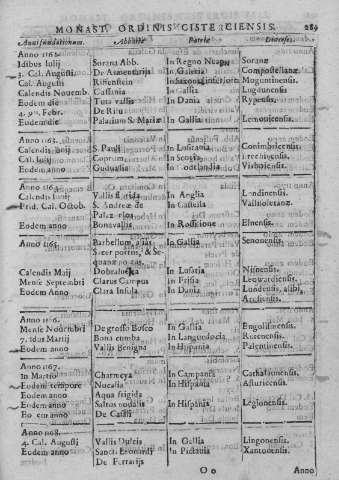 MONAST. ORDINIS CISTERCIENSIS. 289
Anni fundationum. Abbatiæ Patriæ Dioeceses.
Anno 1162.
Idibus Iulij Sorana Abb. In Regno Neap. Soranæ
3. Cal. Augusti De Armentaria In Galecia Compostellanæ
Cal. Augusti Riffenstein Moguntinensis.
Calendis Nouemb. Cassania Lugdunensis
Eodem die Tuta vallis In Dania Rypensis.
4. Febr. De Ritu
Eodem die Palatium S. Mariæ In Gallia Lemouicensis.
Anno 1163.
Cal. Iulij S. Pauli In Lusitania Conimbricensis.
Cal. Iulij Coprum In Scotia
Guduallia In Gotlandia
Anno 1164.
Calendis Iunij Vallis florida In Anglia Londinensis.
Prid. Cal. Octob. S. Andreæ de In Castella Vallisoletanæ.
Palazuelos
Eodem anno Bonavallis In Rossilione Elnensis.
Anno 1165. Barbellum, aliàs In Gallia Senonensis.
Sacer portus, & Se-
quanæ
Calendis Maij Dobraluka In Lusatia Misnensis.
Mense Septembri Clarus Campus In Frisia Leowardiensis.
Eodem Anno Clara Insula In Dania Lundensis, alibi
Anno 1166.
Mense Nouembri De grosso Bosco In Gallia Engolismensis.
7. idus Martij Bona cumba In Languedocia Rutenensis.
Eodem anno Vallis Benigna In Hispania Palentinensis.
Anno 1167.
In Martio Charmeya In Campania Cathalaunensis.
Eodem tempore Nucalia In Hispania Asturicensis.
Eodem anno Aqua frigida
Eodem anno Saltus nodalis In Hispania Legionensis.
Eodem anno De Casali
Anno 1168.
4. Cal. Augusti Vallis Dulcis In Gallia Lingonensis.
Eodem anno Sancti Leonardi In Pictauia Xantonensis.
De Ferrarijs
O o Anno